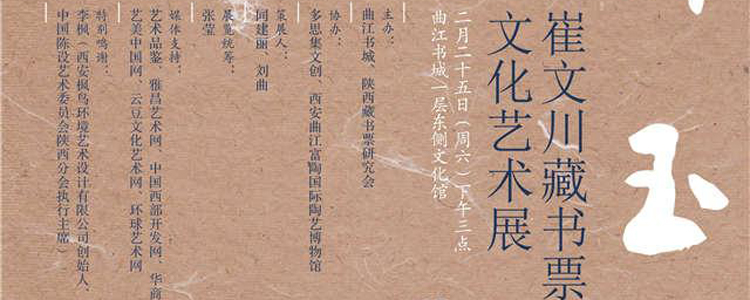 玉
崔文川藏书票
文化艺术展
二月二十五日（周六）下午三点
曲江书城一层东侧文化馆
主办：
曲江书城、陕西藏书票研究会
协办：
多思集文创 西安曲江富陶国际陶艺博物馆
策展人：
闻建丽 刘曲
展览统筹：
张莹
媒体支持：
艺术品鉴、雅昌艺术网、中国西部开发网、华商
艺美中国网、云豆文化艺术网、环球艺术网
特别鸣谢：
李枫（西安枫鸟环境艺术设计有限公司创始人、
中国陈设艺术委员会陕西分会执行主席）